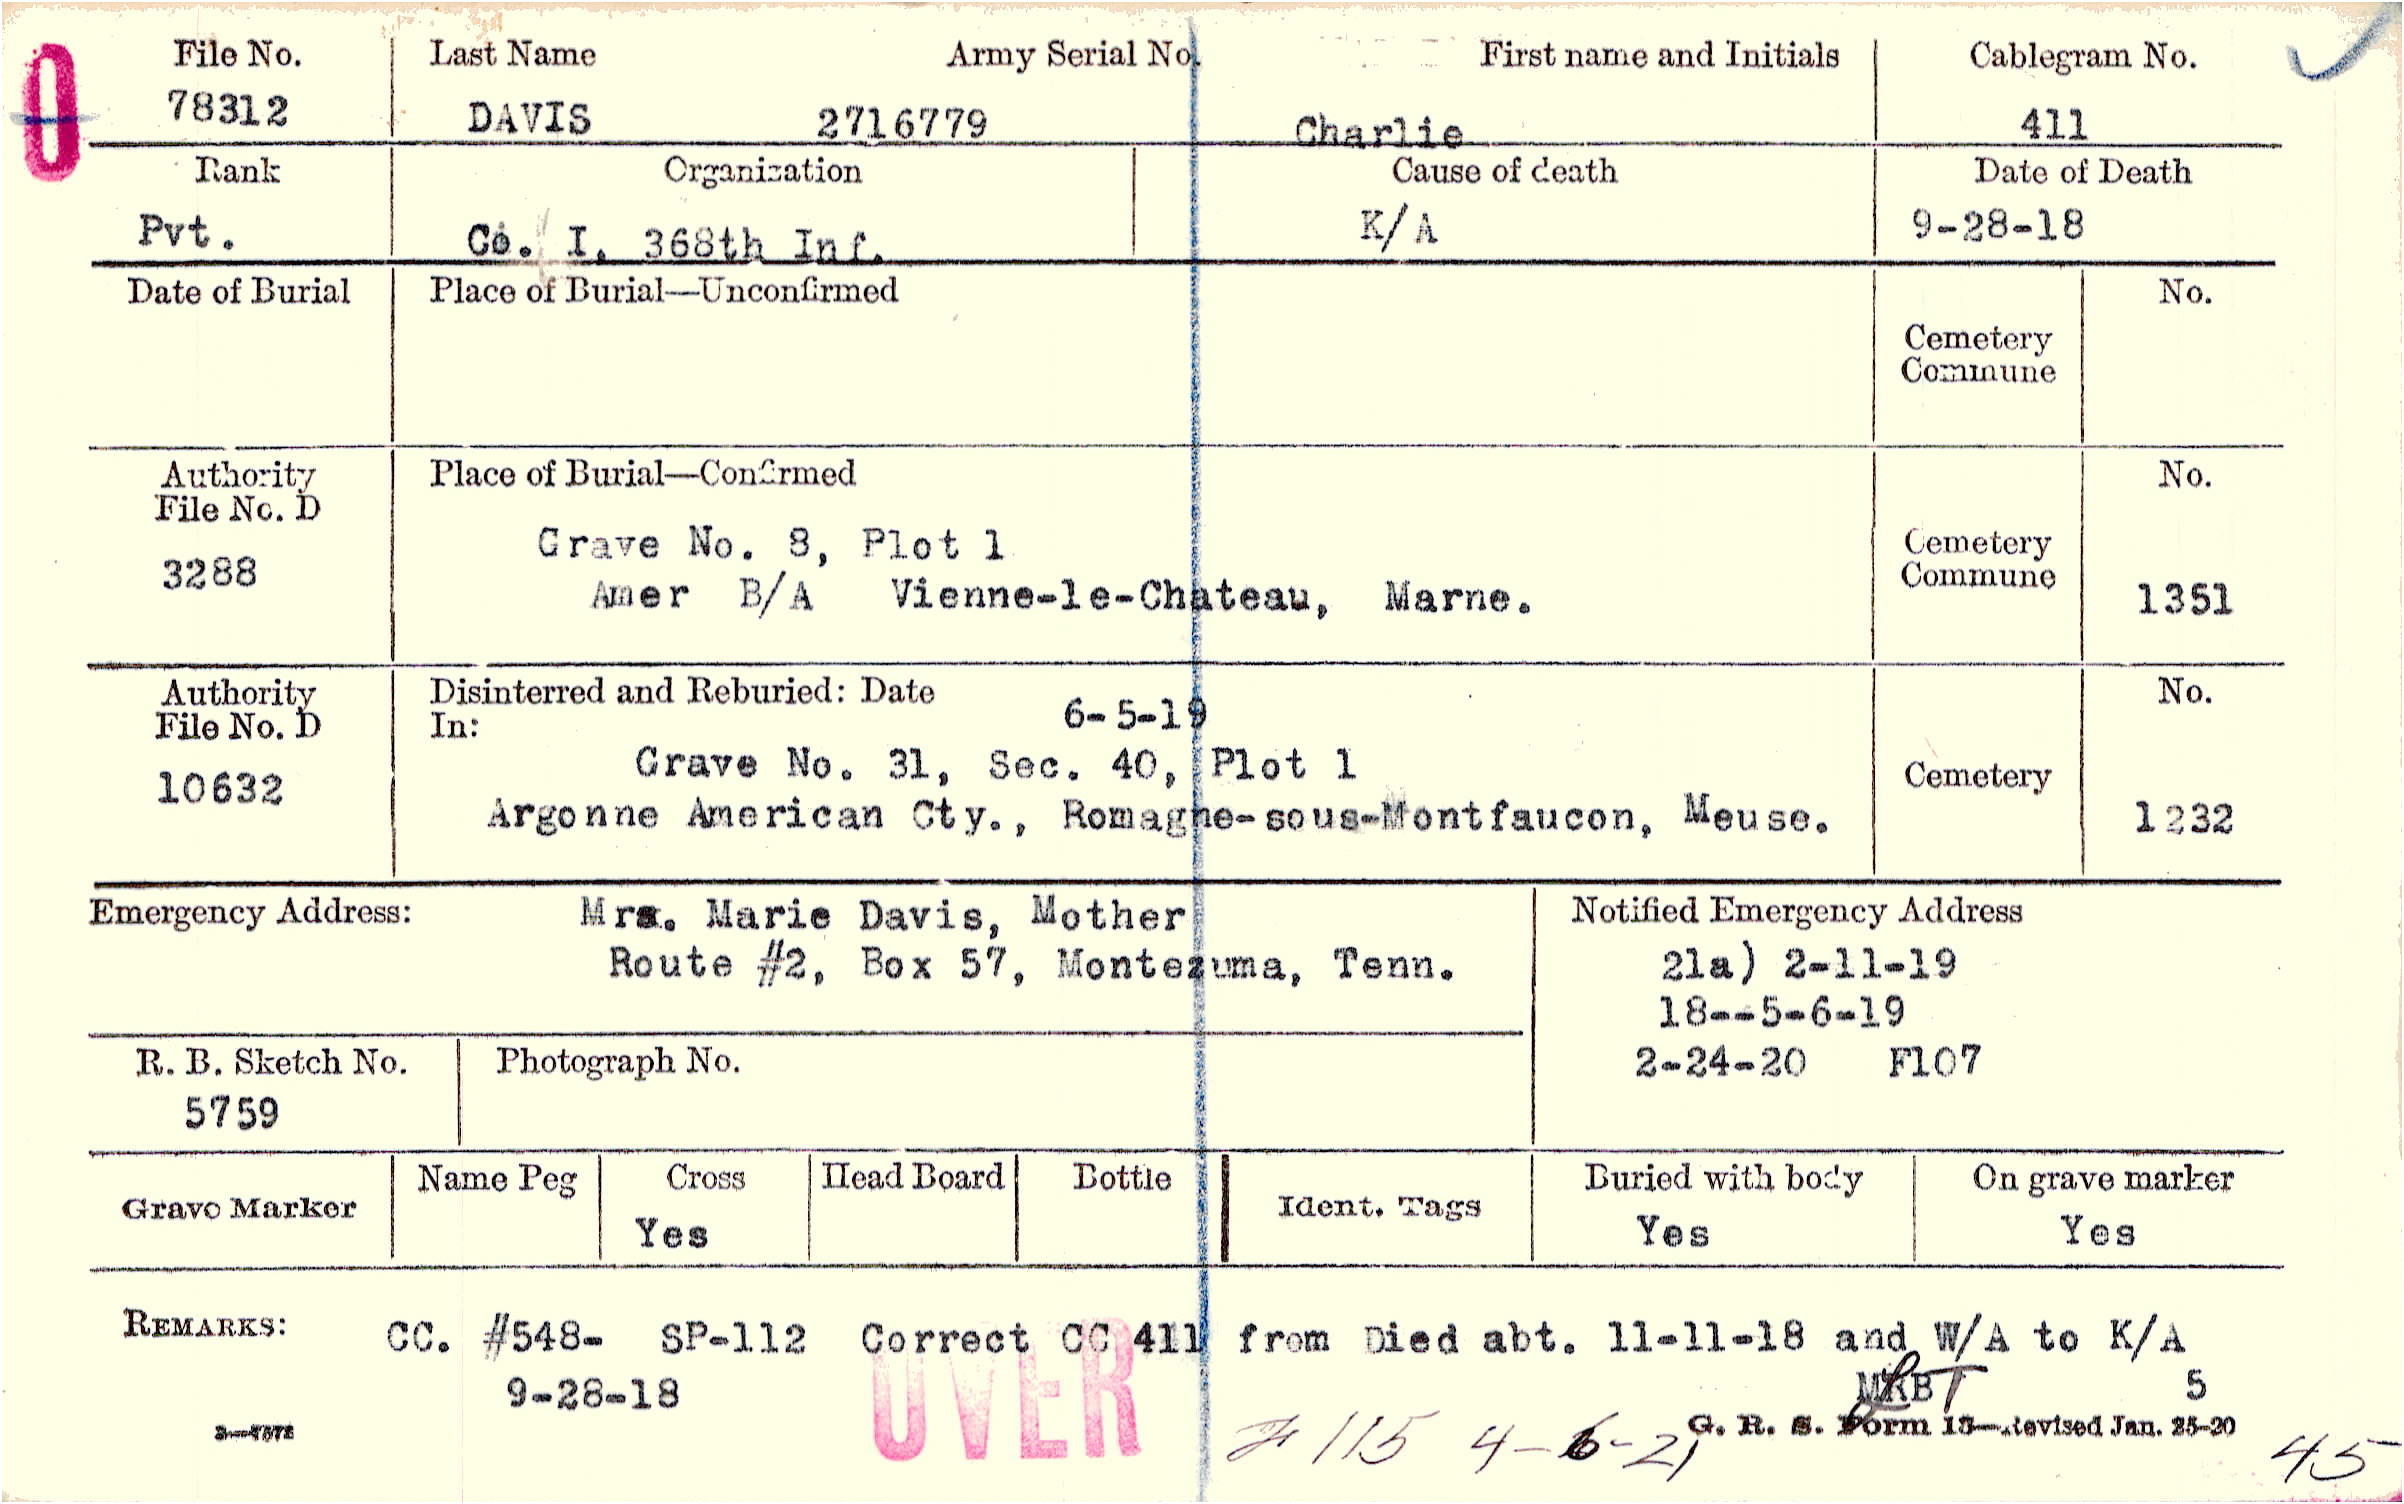 0
File No. Last Name Army Serial No. First name and Initials Cablegram No.
78312 DAVIS 2716779 Charlie 411
Rank Organization Cause of death Date of Death
Pvt. Co. I. 368th Inf. K/A 9-28-18
Date of Burial Place of Burial—Unconfirmed No.
Cemetery
Commune
Authority Place of Burial—Confirmed No.
File No. D
Grave No. 8, Plot 1 Cemetery
3288 Amer B/A Vienne-le-Chateau, Marne. Commune 1351
Authority Disinterred and Reburied: Date 6-5-19 No.
File No. D In:
Grave No. 31, Sec. 40, Plot 1 Cemetery
10632 Argonne American Cty., Romagne-sous-Montfaucon, Meuse. 1232
Emergency Address: Mrs. Marie Davis, Mother Notified Emergency Address
Route #2, Box 57, Montezuma, Tenn. 21a) 2-11-19
18--5-6-19
R. B. Sketch No. Photograph No. 2-24-20 F107
5759
Grave Marker Name Peg Cross Head Board Bottle Ident. Tags Buried with body On grave marker
Yes Yes Yes
REMARKS: CC. #548- SP-112 Correct CC 411 from Died abt. 11-11-18 and W/A to K/A
9-28-18 OVER 5
3—7372 G. R. S. Form 13—Revised Jan. 25-20
115 4-6-21 45